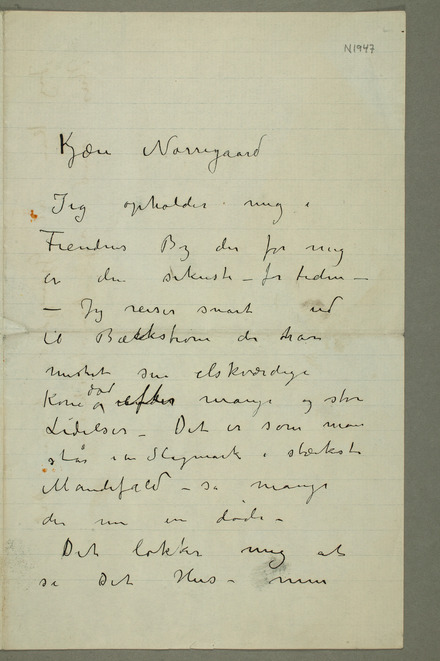 N1947
Kjære Nørregaard
Jeg opholder mig i
Fiendens By der for mig
er den sikreste – for tiden –
– Jeg reiser snart ud
til Bæckstrøm der han
mistet sin elskværdige
Kone død og efter mange og store
Lidelser – Det er som man
står i en Slagmark i stærkeste
Mandefald – så mange
der nu en døde –
Det lokker mig at
se Det Hus – min